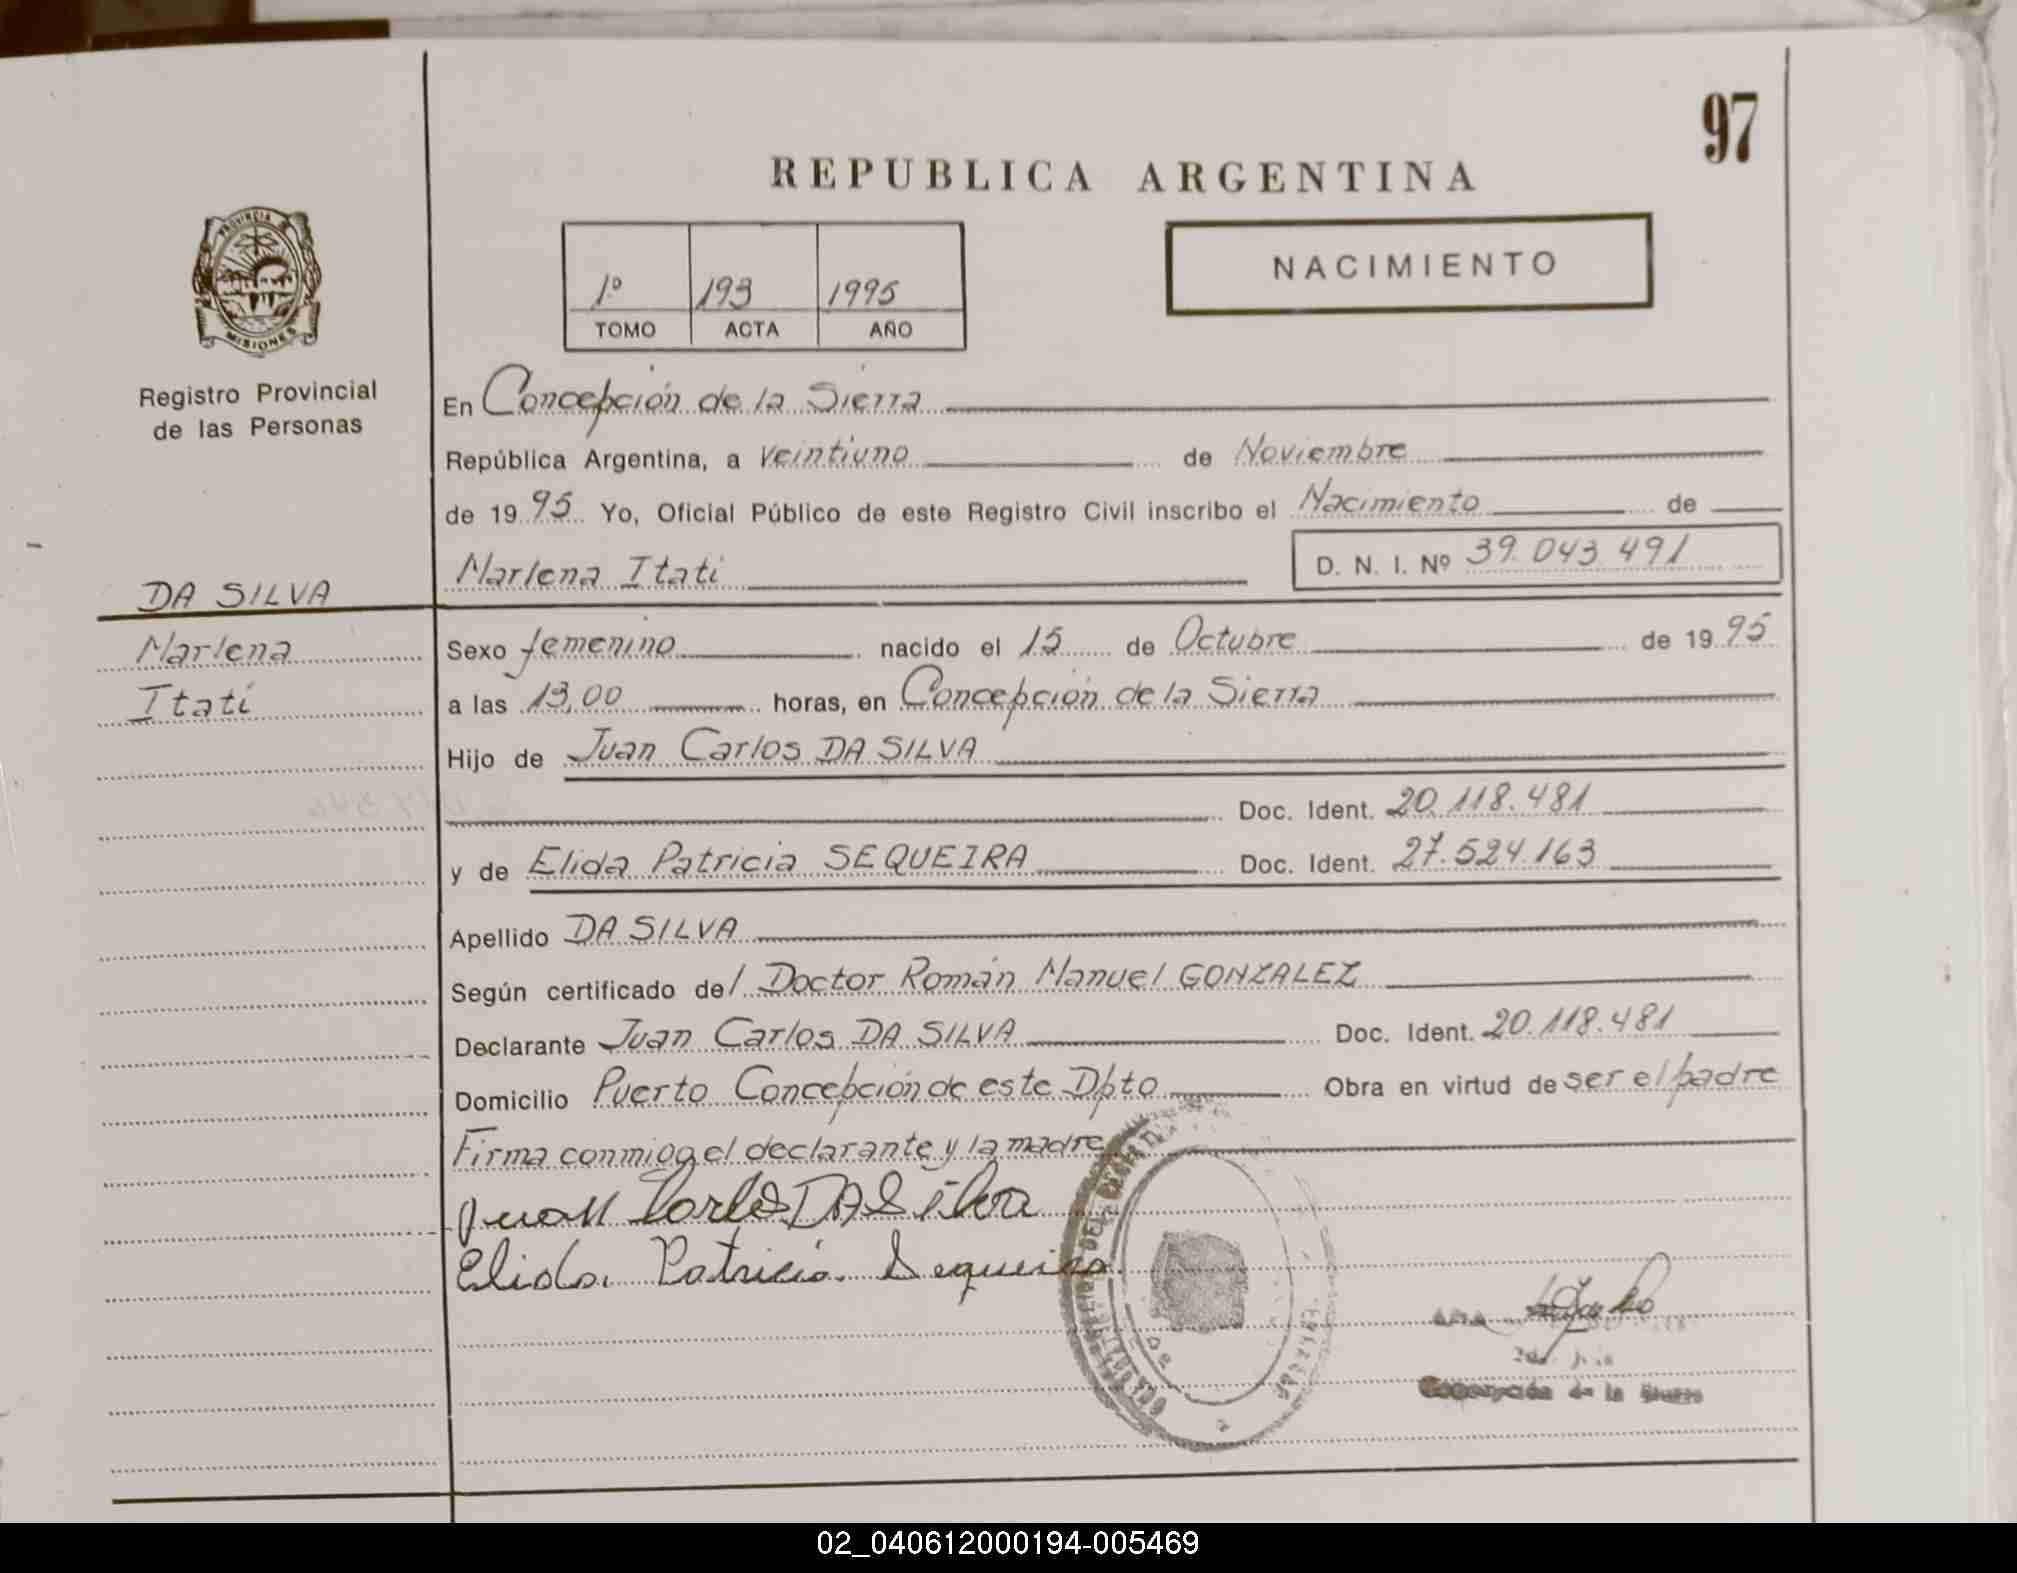 97
REPUBLICA ARGENTINA
PROVINCIA
MISIONES
1º 193 1995
TOMO ACTA AÑO
NACIMIENTO
Registro Provincial
de las Personas
En Concepción de la Sierra
República Argentina, a veintiuno de Noviembre
de 1995 Yo, Oficial Público de este Registro Civil inscribo el Nacimiento de
Marlena Itatí D. N. I. Nº 39.043.491
DA SILVA
Marlena
Itatí
Sexo femenino nacido el 15 de Octubre de 1995
a las 13,00 horas, en Concepción de la Sierra
Hijo de Juan Carlos DA SILVA
Doc. Ident. 20.118.481
y de Elida Patricia SEQUEIRA Doc. Ident. 27.524.163
Apellido DA SILVA
Según certificado del Doctor Román Manuel GONZALEZ
Declarante Juan Carlos DA SILVA Doc. Ident. 20.118.481
Domicilio Puerto Concepción de este Dpto Obra en virtud de ser el padre
Firma conmigo el declarante y la madre
Juan Carlos DA Silva
Elida Patricia Sequeira
Concepción de la Sierra
02_040612000194-005469